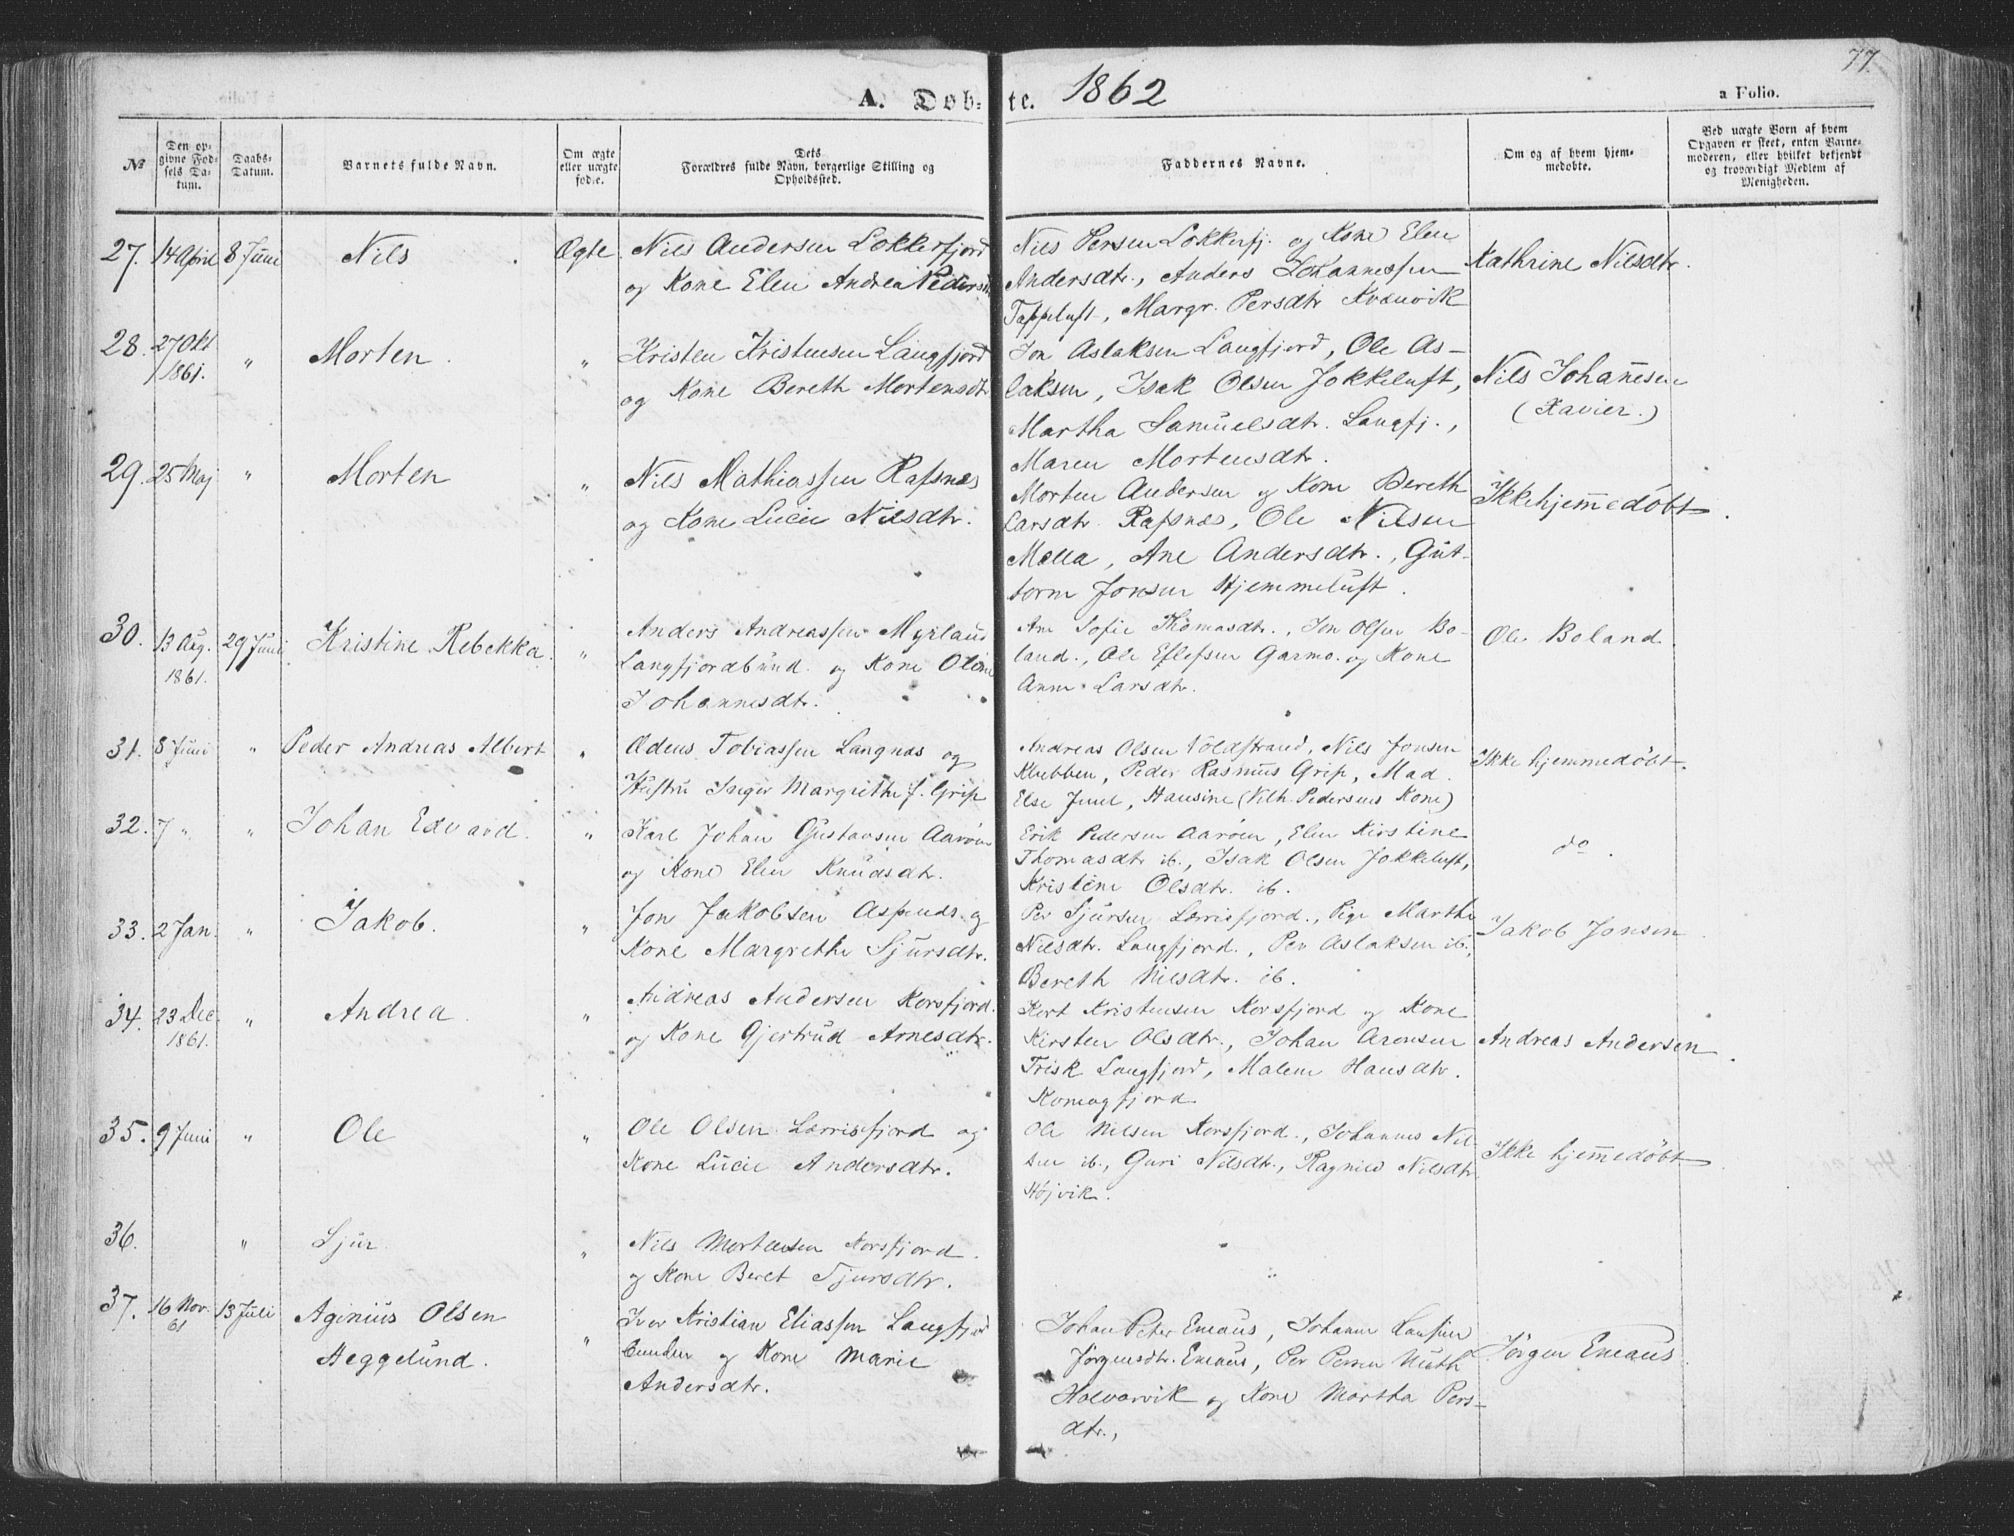 77.
A. Døb-te. 1862
a Folio.
№
Den op-
givne Fød-
sels Da-
tum.
Daabs-
Datum.
Barnets fulde Navn.
Om ægte
eller uægte
født.
Dets
Forældres fulde Navn, borgerlige Stilling og
Opholdssted.
Faddernes Navne.
Om og af hvem hjem-
medøbte.
Ved uægte Børn af hvem
Opgaven er skeet, enten Barne-
moderen, eller hvilket bekjendt
og troværdigt Medlem af
Menigheden.
27. 14 April 8 Juni Nils Ægte
Nils Andersen Lokkerfjord
og Kone Elen Andrea Pedersdtr
Nils Persen Lokkerfj. og Kone Elen
Andersdtr., Anders Johannessen
Tappeluft, Margr. Persdtr Kvænvik
Kathrine Nilsdtr.
28. 27 Okt 1861. " Morten. "
Kristen Kristensen Langfjord
og Kone Bereth Mortensdtr
Jon Aslaksen Langfjord, Ole As-
laksen, Isak Olsen Jokkeluft,
Martha Samuelsdtr. Langfj.,
Maren Mortensdtr.
Nils Johannesen
(Xavier.)
29. 25 Maj " Morten "
Nils Mathiassen Rafsnæs
og Kone Lucie Nilsdtr.
Morten Andersen og Kone Bereth
Larsdtr. Rafsnæs, Ole Nilsen
Mella, Ane Andersdtr., Gut-
torm Jonsen Hjemmeluft.
Ikke hjemmedøbt.
30. 13 Aug. 1861. 29 Juni Kristine Rebekka. "
Anders Andreassen Myrland
Langfjordbund. og Kone Oline
Johannesdtr.
Ane Sofie Thomasdtr., Jon Olsen Bo-
land., Ole Garmo. og Kone
Anne Larsdtr.
Ole Boland.
31. 8 Juni " Peder Andreas Albert "
Edens Tobiassen Langnæs og
Hustru Inger Margrethe f. Grip
Andreas Olsen Voldstrand, Nils Jonsen
Klubben, Peder Rasmus Grip, Mad.
Else Juul, Hansine (Vilh. Pedersens Kone)
Ikke hjemmedøbt.
32. 7 " " Johan Edvard. "
Karl Johan Gustavsen Aarøen
og Kone Elen Knudsdtr.
Erik Pedersen Aarøen, Elen Kirstine
Thomasdtr ib., Isak Olsen Jokkeluft,
Kristine Olsdtr. ib.
do.
33. 2 Jan. " Jakob. "
Jon Jakobsen Aspenæs og
Kone Margrethe Sjursdtr.
Per Sjursen Lerrisfjord., Pige Marthe
Nilsdtr. Langfjord., Per Aslaksen ib.,
Bereth Nilsdtr. ib.
Jakob Jonsen
34. 23 Dec. 1861. " Andrea. "
Andreas Andersen Korsfjord.
og Kone Gjertrud Arnesdtr.
Kort Kristensen Korsfjord og Kone
Kirsten Olsdtr., Johan Aronsen
Frisk Langfjord, Malene Hansdtr.
Komagfjord
Andreas Andersen.
35. 9 Juni " Ole "
Ole Olsen Lerrisfjord og
Kone Lucie Andersdtr.
Ole Nilsen Korsfjord., Johannes Nil-
sen ib., Guri Nilsdtr., Ragnild Nilsdtr
Højvik.
Ikke hjemmedøbt.
36. " Sjur. "
Nils Mortensen Korsfjord.
og Kone Beret Sjursdtr.
"
37. 16 Nov. 61 13 Juli Aginius Olsen
Heggelund. "
Iver Kristian Eliassen Langfjord
bunden og Kone Marie
Andersdtr.
Johan Peter Emaus, Johanne
Jørgensdtr. Emaus, Per Persen Muth
Halvarvik og Kone Martha Pers-
dtr.,
Jørgen Emaus.